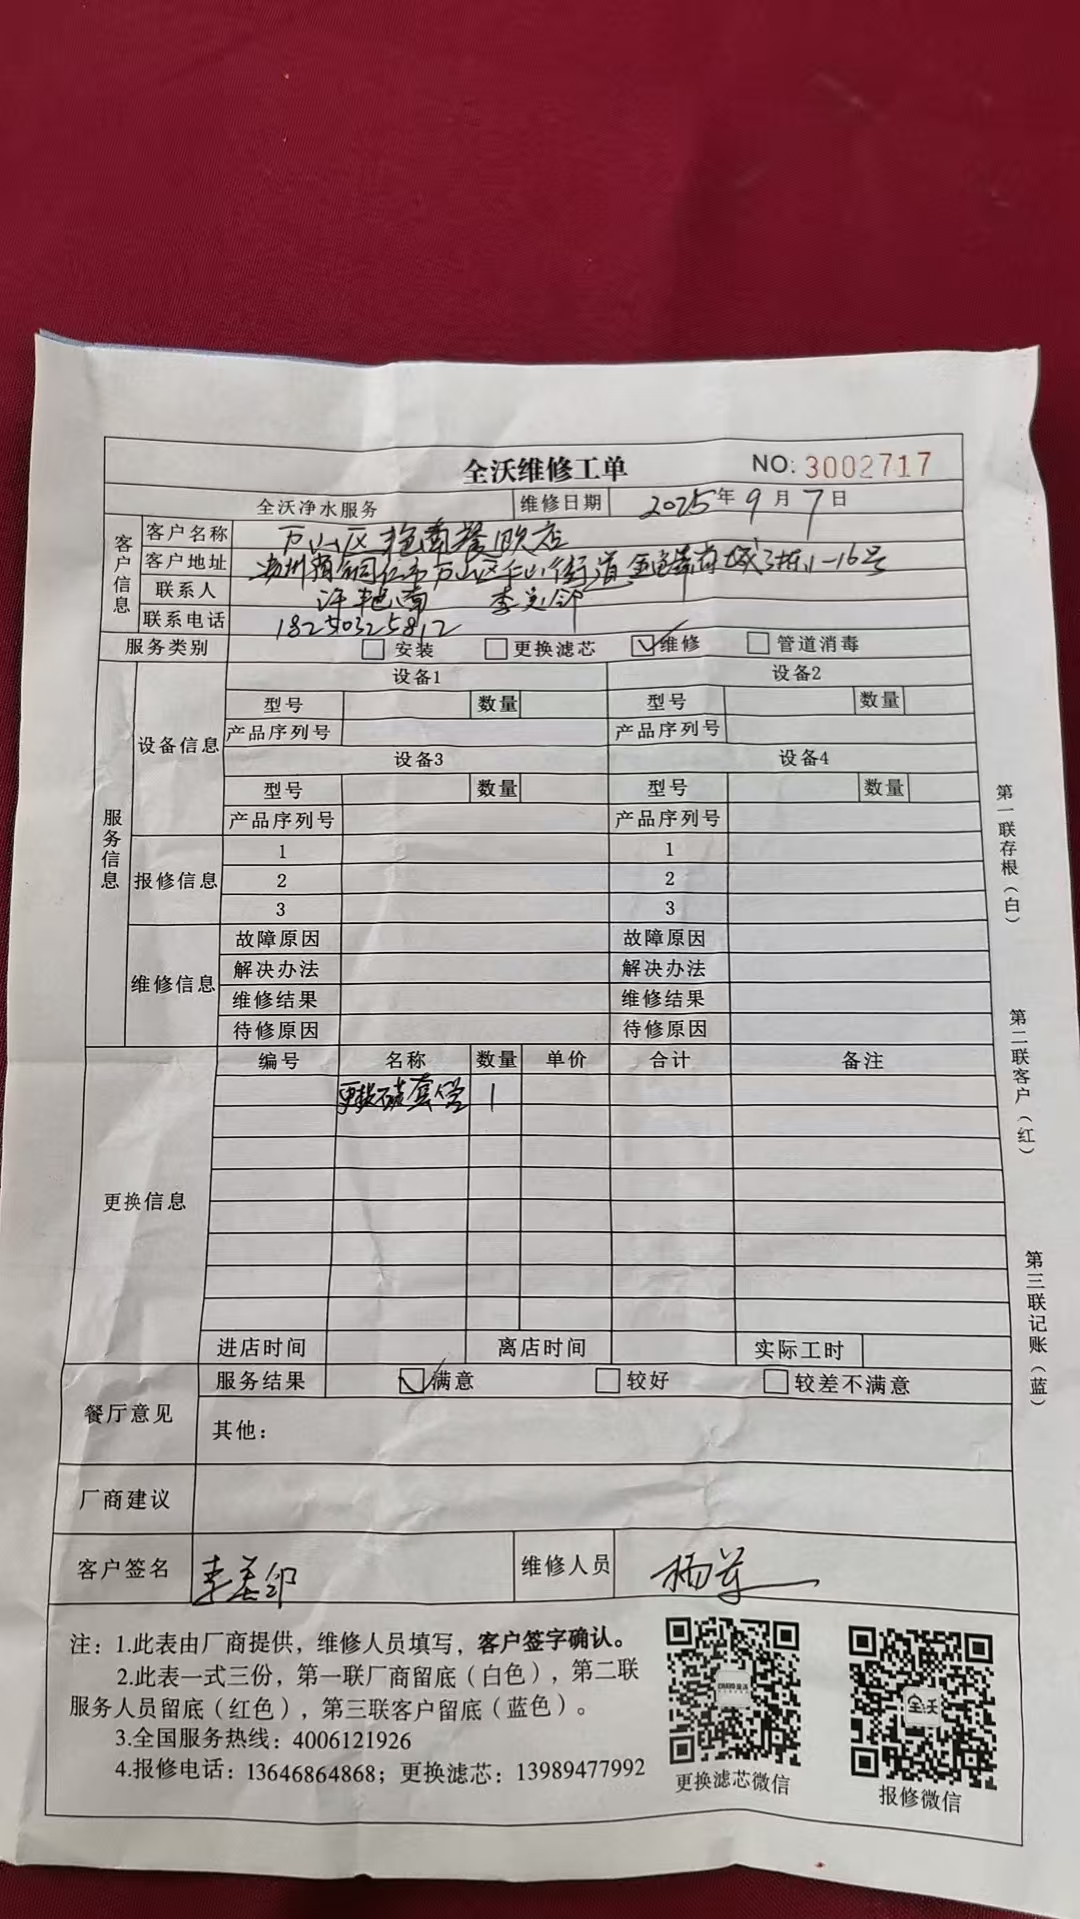 全沃维修工单 NO: 3002717
全沃净水服务 维修日期 2025年9月7日
客户信息
客户名称 万山区艳南餐饮店
客户地址 贵州省铜仁市万山区仟山街道金 城3栋1-16号
联系人 许艳南 李
联系电话 18250325812
服务类别 安装 更换滤芯 维修 管道消毒
服务信息
设备信息
设备1 设备2
型号 数量 型号 数量
产品序列号 产品序列号
设备3 设备4
型号 数量 型号 数量
产品序列号 产品序列号
报修信息
1 1
2 2
3 3
维修信息
故障原因 故障原因
解决办法 解决办法
维修结果 维修结果
待修原因 待修原因
更换信息
编号 名称 数量 单价 合计 备注
更换 套管 1
进店时间 离店时间 实际工时
餐厅意见
服务结果 满意 较好 较差不满意
其他：
厂商建议
客户签名 李 维修人员 杨
注：1.此表由厂商提供，维修人员填写，客户签字确认。
2.此表一式三份，第一联厂商留底（白色），第二联
服务人员留底（红色），第三联客户留底（蓝色）。
3.全国服务热线：4006121926
4.报修电话：13646864868；更换滤芯：13989477992
全沃
更换滤芯微信 报修微信
第一联存根（白）
第二联客户（红）
第三联记账（蓝）